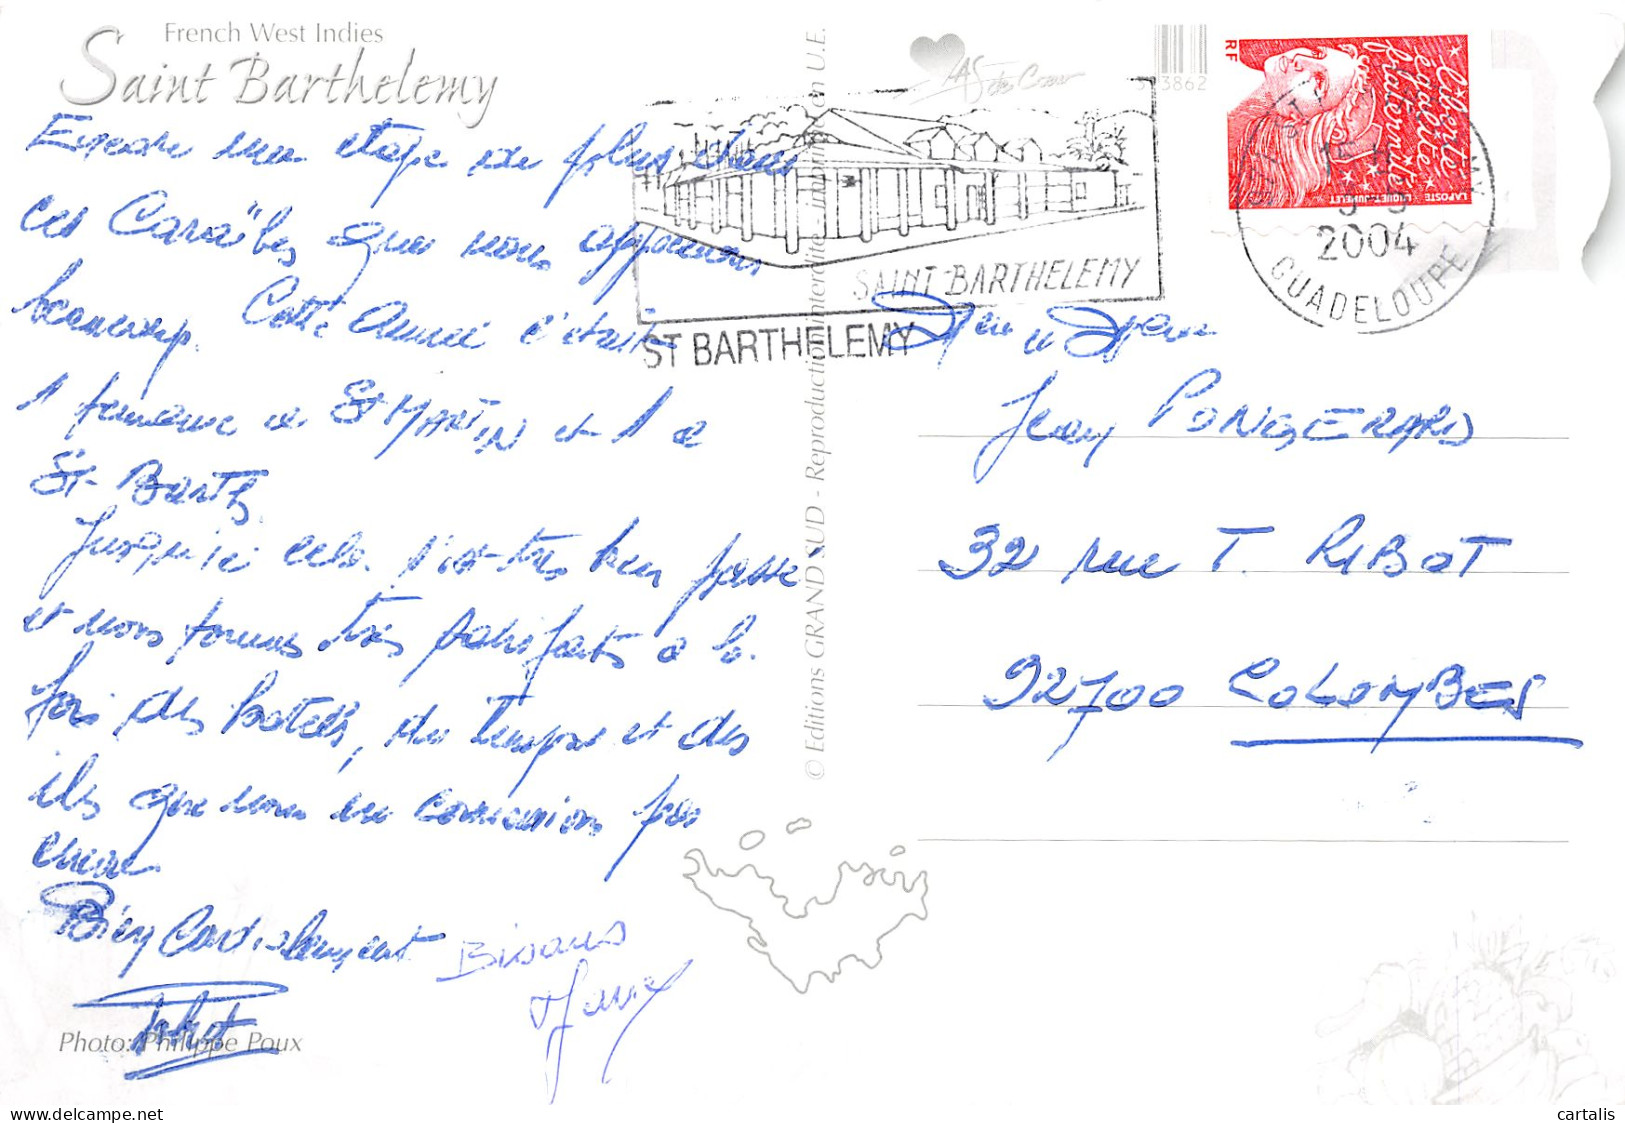 French West Indies
Saint Barthelemy
Encore une étape de plus dans
ces Caraïbes que nous apprécions
beaucoup. Cette année c'était
1 semaine à St MARTIN et 1 à
St Barth.
Jusqu'ici cela s'est très bien passé
et nous sommes très satisfaits à la
fois des hotels, du temps et des
iles que nous ne connaissions pas
encore
Bien Cordialement
Bisous
Photo: Philippe Poux
© Editions GRAND SUD - Reproduction interdite
en U.E.
As de Cœur
3862
SAINT-BARTHELEMY
ST BARTHELEMY
RF
liberté
égalité
fraternité
LA POSTE
LUQUET-JUMELET
2004
GUADELOUPE
Jean PONGERARD
32 rue T. RIBOT
92700 COLOMBES
delcampe.net
cartalis